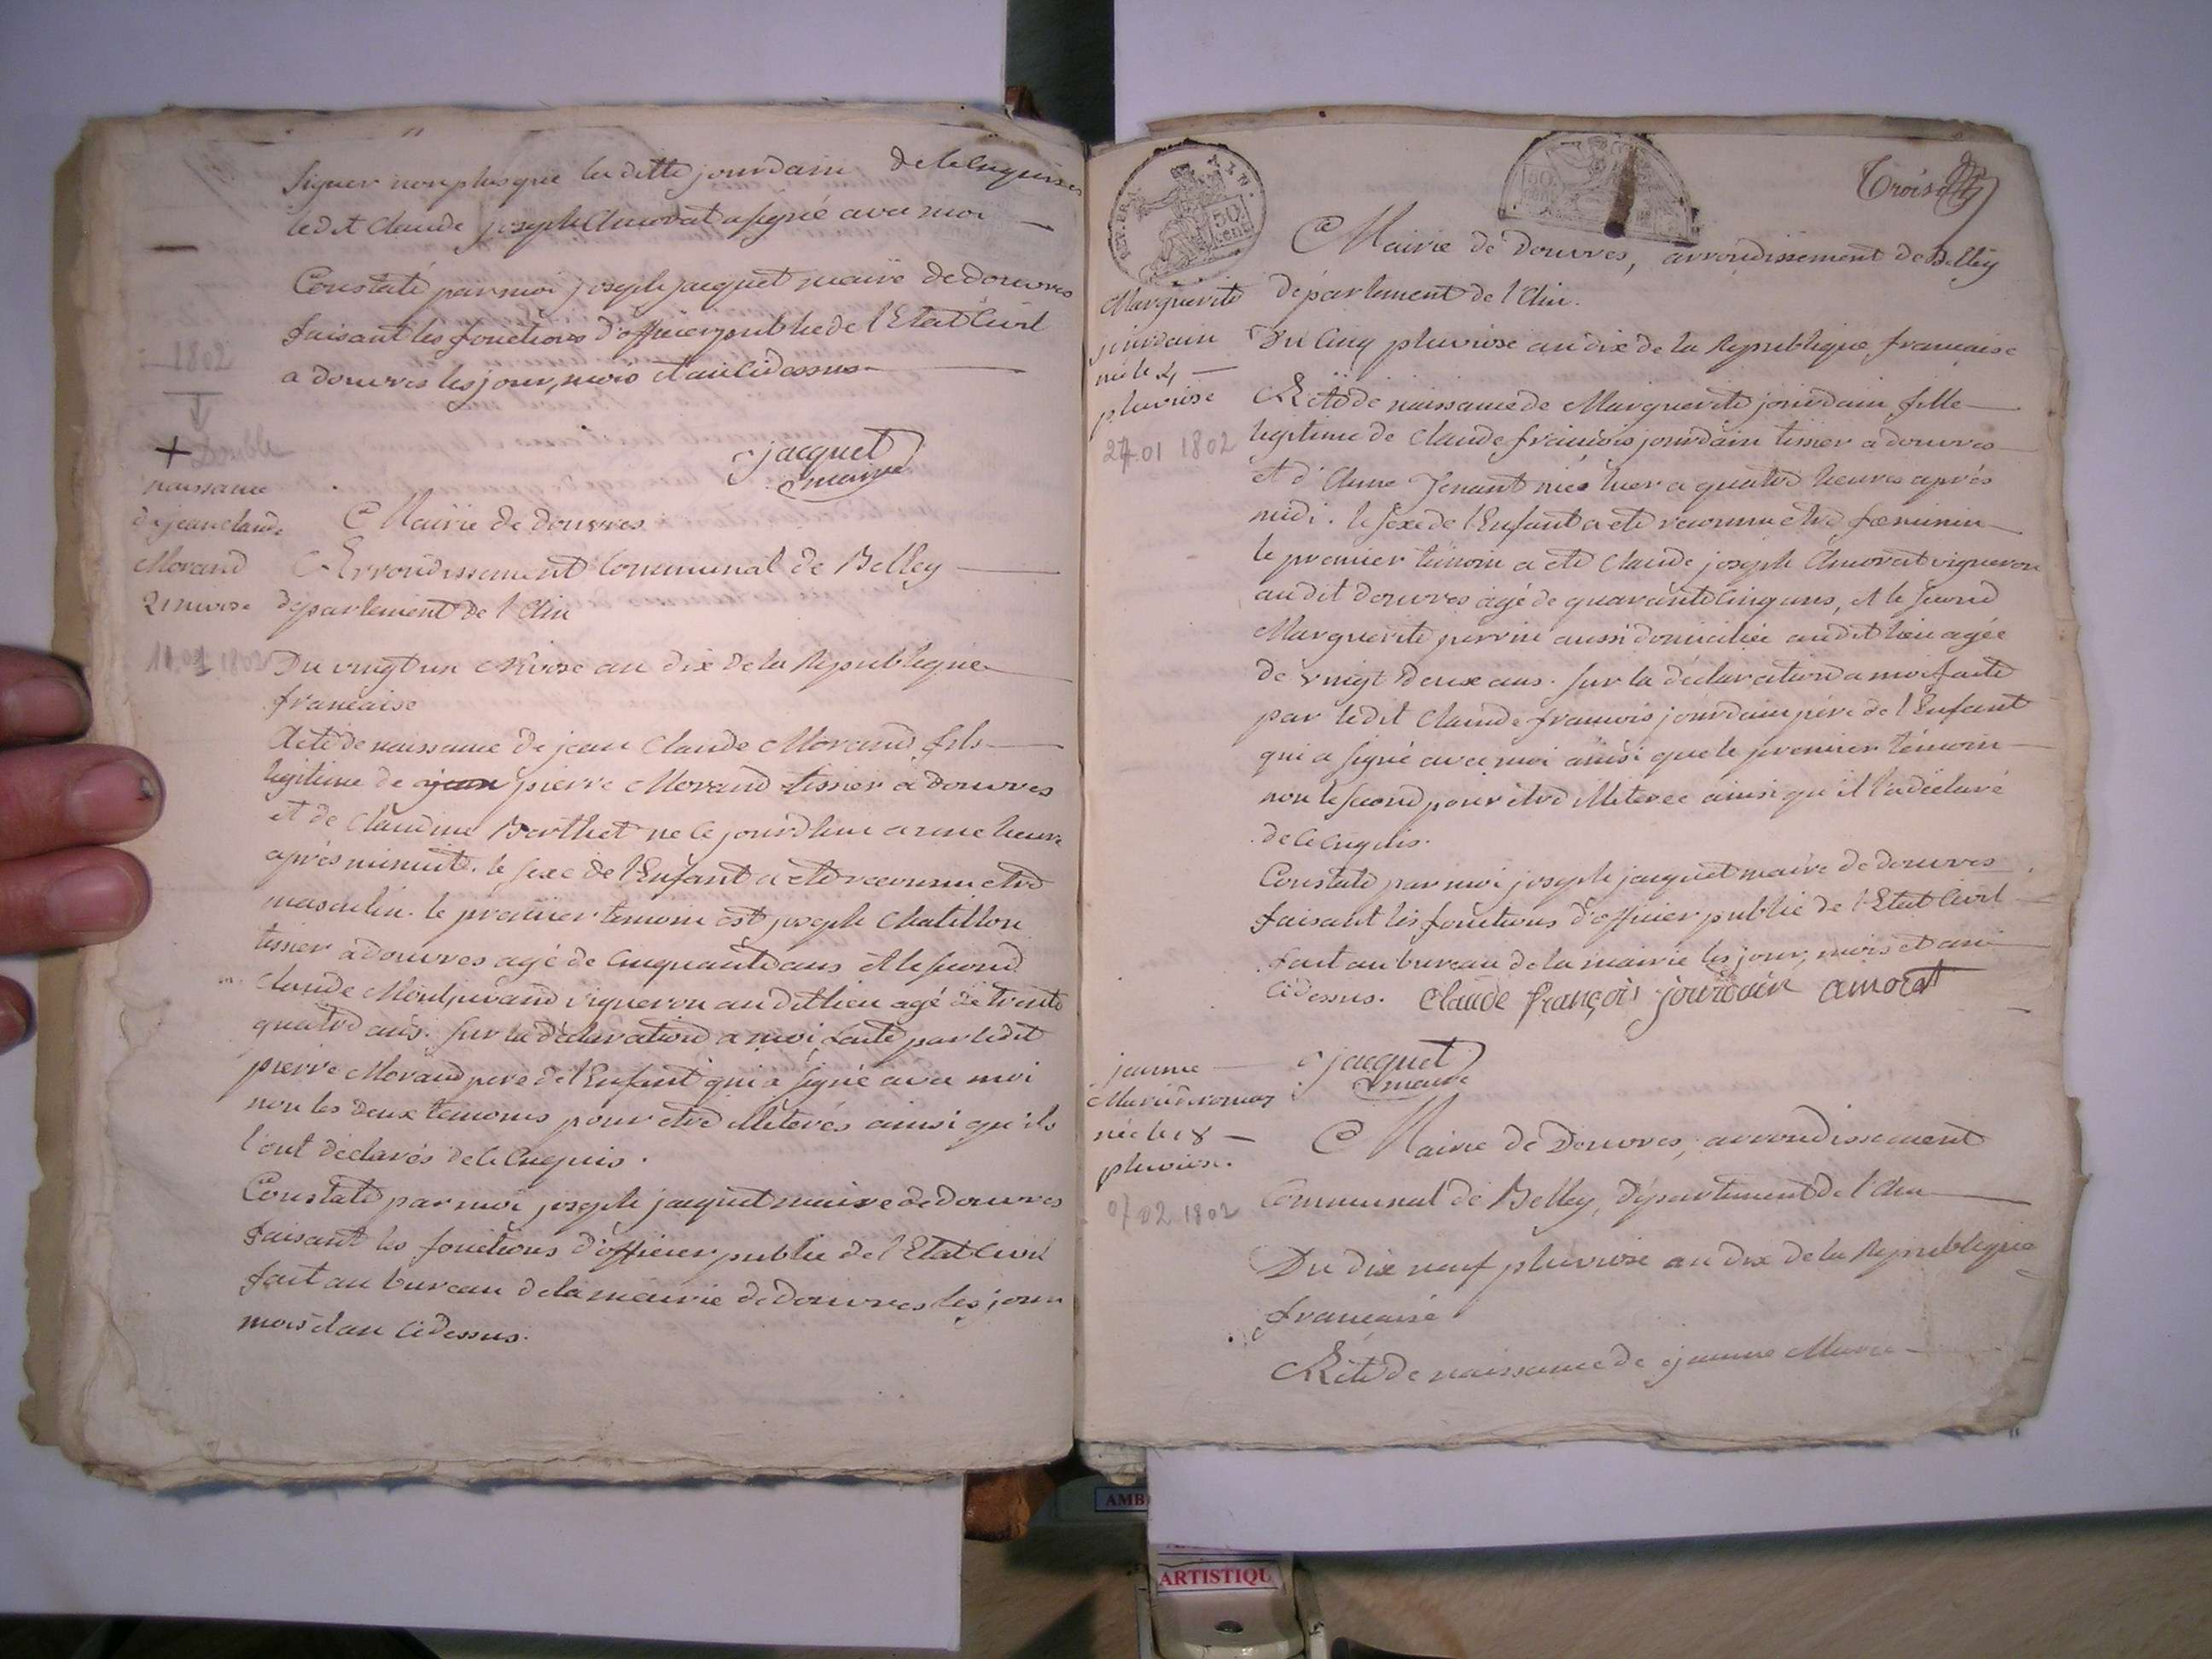 signer non plus que la ditte jourdain de le enquise
ledit Claude joseph Amorat a signé avec moi
Constaté par moi joseph jacquet maire de douvres
faisant les fonctions d'officier public de l'Etat Civil
a douvres les jour, mois et an Cidessus
jacquet
maire
1802
Double
naissance
de jean claude
Morand
21 nivose
11.01 1802
Mairie de douvres
Arrondissement Communal de Belley
département de l'Ain
Du vingt un Nivose an dix de la Republique
francaise
Acte de naissance de jean Claude Morand fils
legitime de pierre Morand tissier a douvres
et de Claudine Berthet né ce jourdhui a une heure
après minuit. le sexe de l'Enfant a eté reconnu etre
masculin. le premier temoin est joseph Chatillon
tissier a douvres agé de Cinquante ans et le second
Claude Montjuvand vigneron audit lieu agé de trente
quatre ans. sur la déclaration a moi faite par ledit
pierre Morand pere de l'Enfant qui a signé avec moi
non les deux temoins pour etre illeterés ainsi qu'ils
l'ont déclarés de le Enquis.
Constaté par moi joseph jacquet maire de douvres
faisant les fonctions d'officier public de l'Etat Civil
fait au bureau de la mairie de douvres les jour
mois et an Cidessus.
REP. FRA.
50 cent.
Trois
Mairie de Douvres, arrondissement de Belley
département de l'Ain.
Marguerite
jourdain
née le 4
pluviose
24.01 1802
Du Cinq pluviose an dix de la Republique francaise
Acte de naissance de Marguerite jourdain fille
legitime de Claude francois jourdain tissier a douvres
et d'Anne Tenant née hier a quatre heures après
midi. le sexe de l'Enfant a eté reconnu etre fœminin
le premier témoin a eté Claude joseph Amorat vigneron
audit douvres agé de quarante Cinq ans, et le second
Marguerite perrin aussi domiciliée audit lieu agée
de vingt deux ans. sur la déclaration a moi faite
par ledit Claude francois jourdain père de l'Enfant
qui a signé avec moi ainsi que le premier témoin
non le second pour etre illeteree ainsi qu'il l'a déclaré
de le Enquis.
Constaté par moi joseph jacquet maire de douvres
faisant les fonctions d'officier public de l'Etat Civil
fait au bureau de la mairie les jour, mois et an
Cidessus. Claude françois jourdain amorat
jacquet
maire
jeanne
Marie
née le 18
pluviose.
07 02 1802
Mairie de Douvres, arrondissement
Communal de Belley, département de l'Ain
Du dix neuf pluviose an dix de la Republique
francaise
Acte de naissance de jeanne Marie
AMB
ARTISTIQU